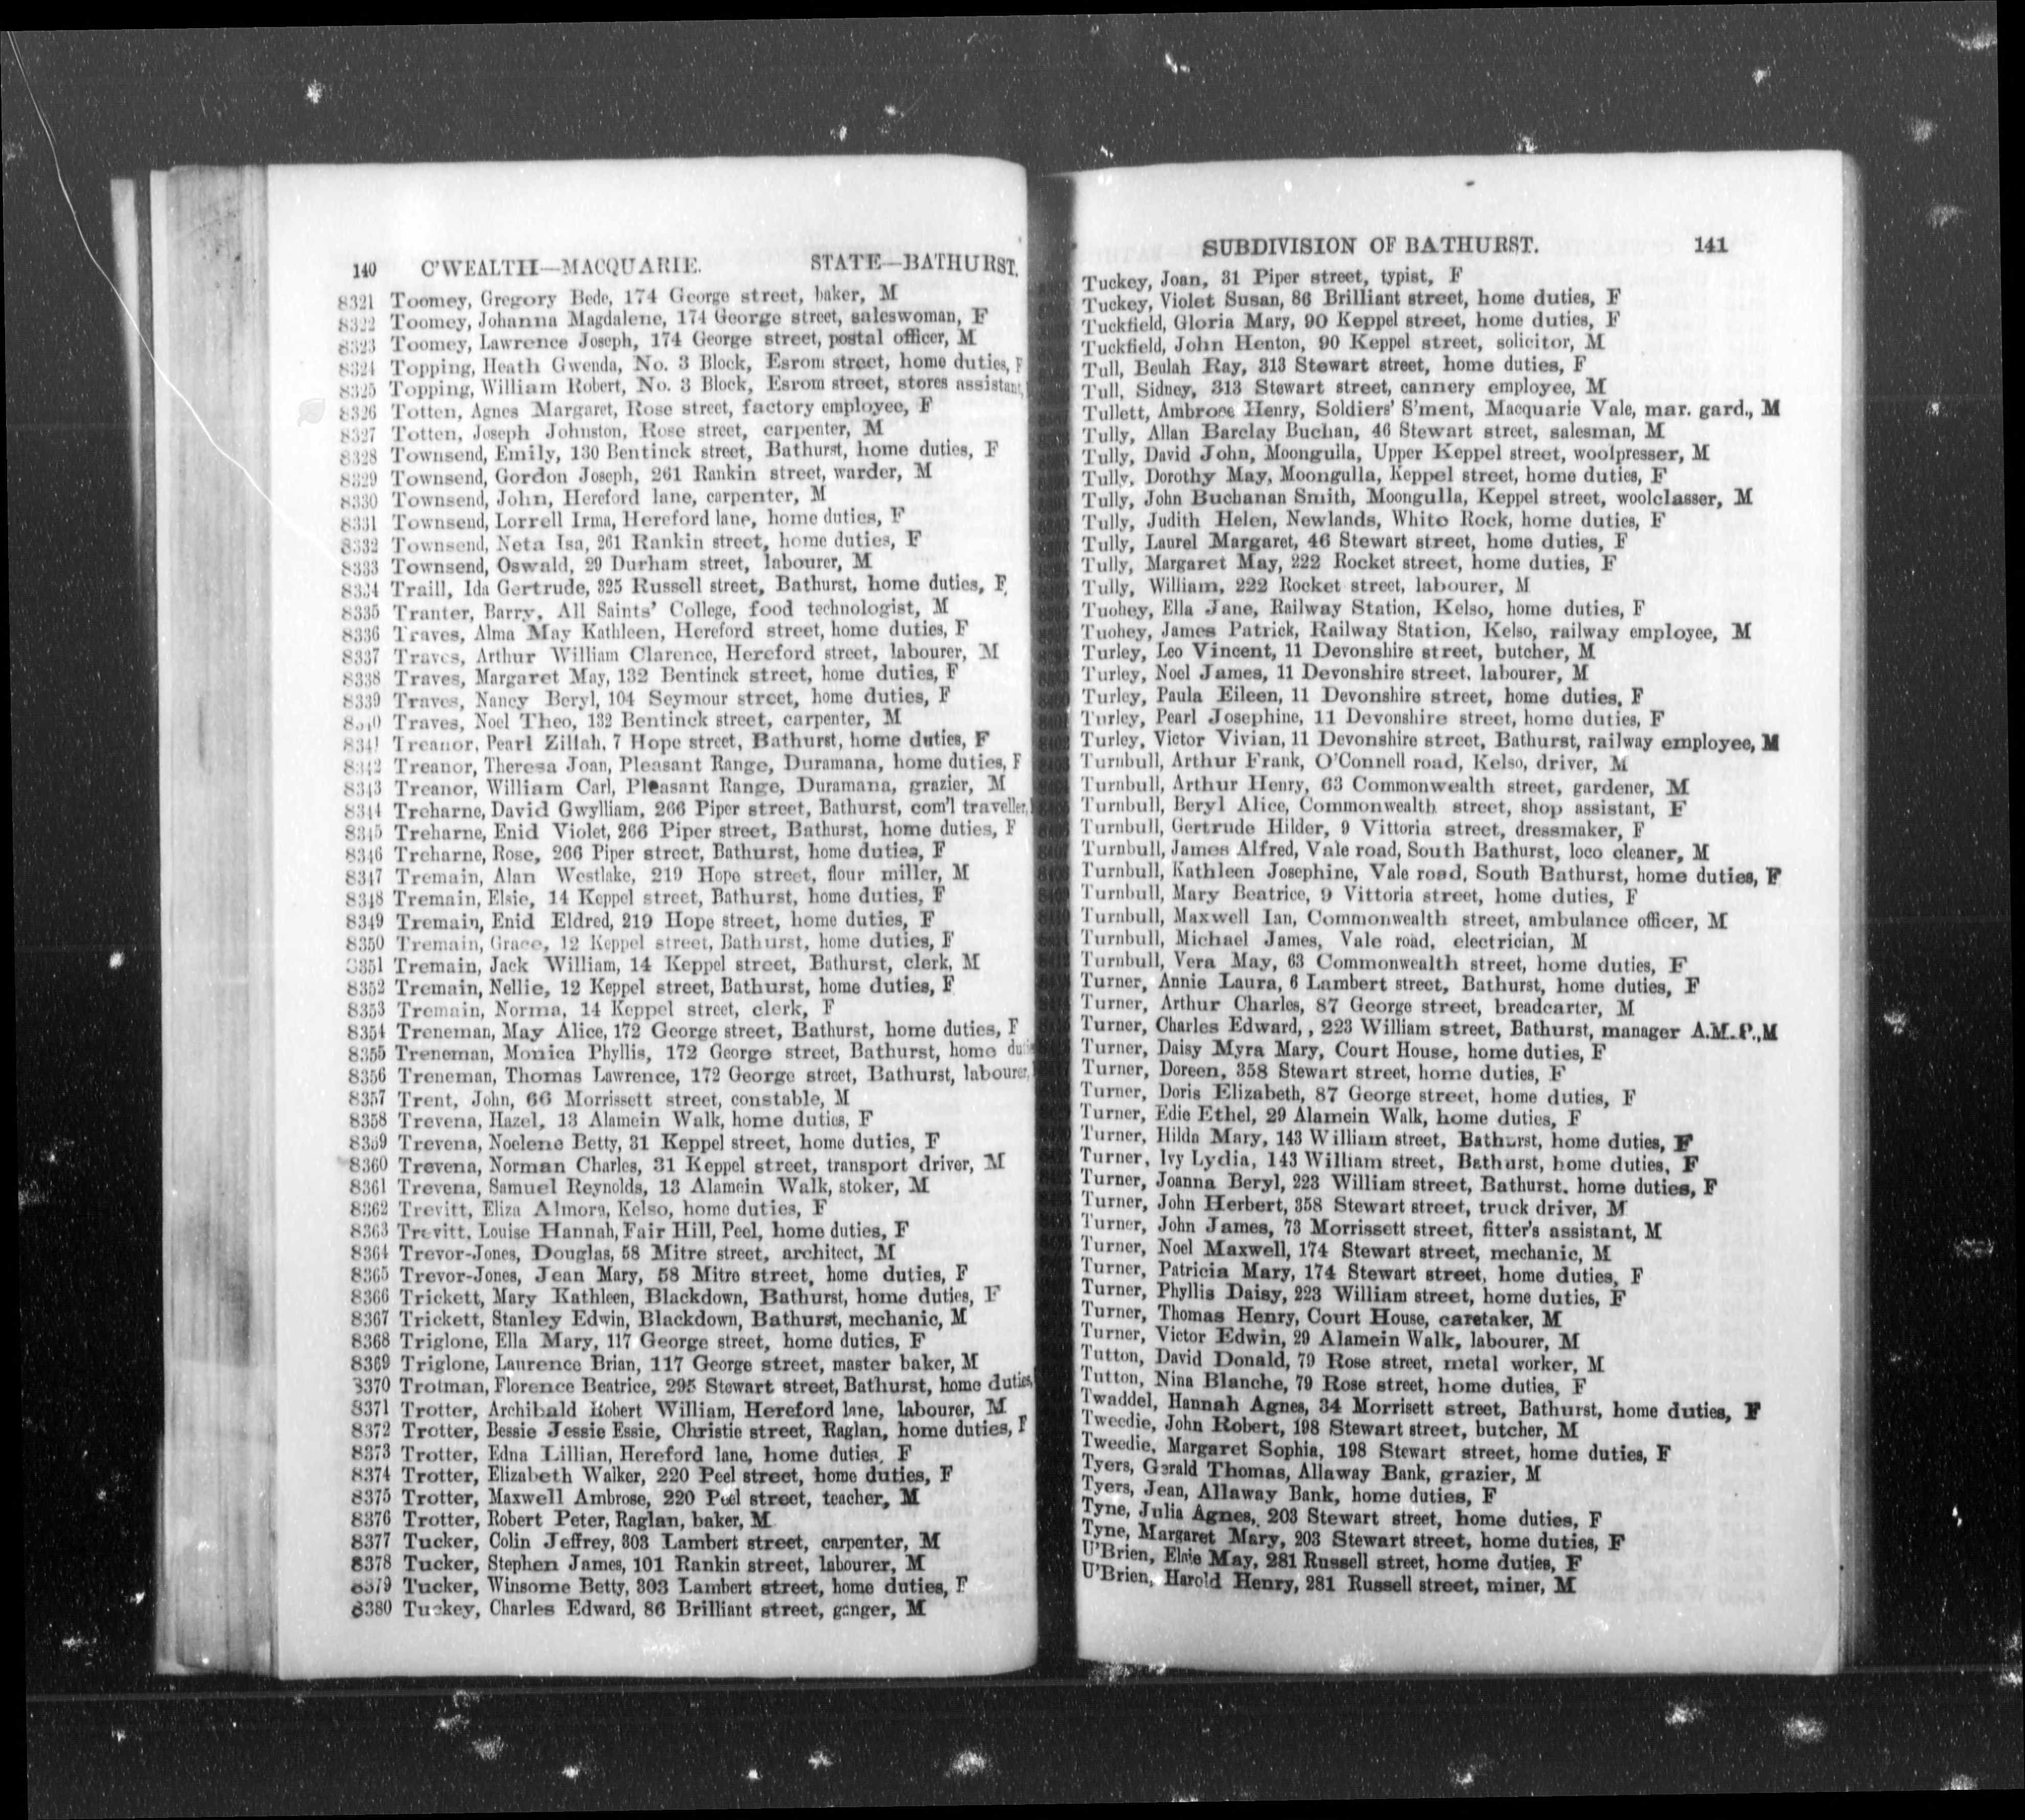 140 C'WEALTH—MACQUARIE. STATE—BATHURST.
8321 Toomey, Gregory Bede, 174 George street, baker, M
8322 Toomey, Johanna Magdalene, 174 George street, saleswoman, F
8323 Toomey, Lawrence Joseph, 174 George street, postal officer, M
8324 Topping, Heath Gwenda, No. 3 Block, Esrom street, home duties, F
8325 Topping, William Robert, No. 3 Block, Esrom street, stores assistant,
8326 Totten, Agnes Margaret, Rose street, factory employee, F
8327 Totten, Joseph Johnston, Rose street, carpenter, M
8328 Townsend, Emily, 130 Bentinck street, Bathurst, home duties, F
8329 Townsend, Gordon Joseph, 261 Rankin street, warder, M
8330 Townsend, John, Hereford lane, carpenter, M
8331 Townsend, Lorrell Irma, Hereford lane, home duties, F
8332 Townsend, Neta Isa, 261 Rankin street, home duties, F
8333 Townsend, Oswald, 29 Durham street, labourer, M
8334 Traill, Ida Gertrude, 325 Russell street, Bathurst, home duties, F
8335 Tranter, Barry, All Saints' College, food technologist, M
8336 Traves, Alma May Kathleen, Hereford street, home duties, F
8337 Traves, Arthur William Clarence, Hereford street, labourer, M
8338 Traves, Margaret May, 132 Bentinck street, home duties, F
8339 Traves, Nancy Beryl, 104 Seymour street, home duties, F
8340 Traves, Noel Theo, 132 Bentinck street, carpenter, M
8341 Treanor, Pearl Zillah, 7 Hope street, Bathurst, home duties, F
8342 Treanor, Theresa Joan, Pleasant Range, Duramana, home duties, F
8343 Treanor, William Carl, Pleasant Range, Duramana, grazier, M
8344 Treharne, David Gwylliam, 266 Piper street, Bathurst, com'l traveller,
8345 Treharne, Enid Violet, 266 Piper street, Bathurst, home duties, F
8346 Treharne, Rose, 266 Piper street, Bathurst, home duties, F
8347 Tremain, Alan Westlake, 219 Hope street, flour miller, M
8348 Tremain, Elsie, 14 Keppel street, Bathurst, home duties, F
8349 Tremain, Enid Eldred, 219 Hope street, home duties, F
8350 Tremain, Grace, 12 Keppel street, Bathurst, home duties, F
8351 Tremain, Jack William, 14 Keppel street, Bathurst, clerk, M
8352 Tremain, Nellie, 12 Keppel street, Bathurst, home duties, F
8353 Tremain, Norma, 14 Keppel street, clerk, F
8354 Treneman, May Alice, 172 George street, Bathurst, home duties, F
8355 Treneman, Monica Phyllis, 172 George street, Bathurst, home
8356 Treneman, Thomas Lawrence, 172 George street, Bathurst, labourer,
8357 Trent, John, 66 Morrissett street, constable, M
8358 Trevena, Hazel, 13 Alamein Walk, home duties, F
8359 Trevena, Noelene Betty, 31 Keppel street, home duties, F
8360 Trevena, Norman Charles, 31 Keppel street, transport driver, M
8361 Trevena, Samuel Reynolds, 13 Alamein Walk, stoker, M
8362 Trevitt, Eliza Almora, Kelso, home duties, F
8363 Trevitt, Louise Hannah, Fair Hill, Peel, home duties, F
8364 Trevor-Jones, Douglas, 58 Mitre street, architect, M
8365 Trevor-Jones, Jean Mary, 58 Mitre street, home duties, F
8366 Trickett, Mary Kathleen, Blackdown, Bathurst, home duties, F
8367 Trickett, Stanley Edwin, Blackdown, Bathurst, mechanic, M
8368 Triglone, Ella Mary, 117 George street, home duties, F
8369 Triglone, Laurence Brian, 117 George street, master baker, M
8370 Trotman, Florence Beatrice, 295 Stewart street, Bathurst, home duties
8371 Trotter, Archibald Robert William, Hereford lane, labourer, M
8372 Trotter, Bessie Jessie Essie, Christie street, Raglan, home duties, F
8373 Trotter, Edna Lillian, Hereford lane, home duties, F
8374 Trotter, Elizabeth Walker, 220 Peel street, home duties, F
8375 Trotter, Maxwell Ambrose, 220 Peel street, teacher, M
8376 Trotter, Robert Peter, Raglan, baker, M
8377 Tucker, Colin Jeffrey, 303 Lambert street, carpenter, M
8378 Tucker, Stephen James, 101 Rankin street, labourer, M
8379 Tucker, Winsome Betty, 303 Lambert street, home duties, F
8380 Tuckey, Charles Edward, 86 Brilliant street, ganger, M
SUBDIVISION OF BATHURST. 141
Tuckey, Joan, 31 Piper street, typist, F
Tuckey, Violet Susan, 86 Brilliant street, home duties, F
Tuckfield, Gloria Mary, 90 Keppel street, home duties, F
Tuckfield, John Henton, 90 Keppel street, solicitor, M
Tull, Beulah Ray, 313 Stewart street, home duties, F
Tull, Sidney, 313 Stewart street, cannery employee, M
Tullett, Ambrose Henry, Soldiers' S'ment, Macquarie Vale, mar. gard., M
Tully, Allan Barclay Buchan, 46 Stewart street, salesman, M
Tully, David John, Moongulla, Upper Keppel street, woolpresser, M
Tully, Dorothy May, Moongulla, Keppel street, home duties, F
Tully, John Buchanan Smith, Moongulla, Keppel street, woolclasser, M
Tully, Judith Helen, Newlands, White Rock, home duties, F
Tully, Laurel Margaret, 46 Stewart street, home duties, F
Tully, Margaret May, 222 Rocket street, home duties, F
Tully, William, 222 Rocket street, labourer, M
Tuohey, Ella Jane, Railway Station, Kelso, home duties, F
Tuohey, James Patrick, Railway Station, Kelso, railway employee, M
Turley, Leo Vincent, 11 Devonshire street, butcher, M
Turley, Noel James, 11 Devonshire street, labourer, M
Turley, Paula Eileen, 11 Devonshire street, home duties, F
Turley, Pearl Josephine, 11 Devonshire street, home duties, F
Turley, Victor Vivian, 11 Devonshire street, Bathurst, railway employee, M
Turnbull, Arthur Frank, O'Connell road, Kelso, driver, M
Turnbull, Arthur Henry, 63 Commonwealth street, gardener, M
Turnbull, Beryl Alice, Commonwealth street, shop assistant, F
Turnbull, Gertrude Hilder, 9 Vittoria street, dressmaker, F
Turnbull, James Alfred, Vale road, South Bathurst, loco cleaner, M
Turnbull, Kathleen Josephine, Vale road, South Bathurst, home duties, F
Turnbull, Mary Beatrice, 9 Vittoria street, home duties, F
Turnbull, Maxwell Ian, Commonwealth street, ambulance officer, M
Turnbull, Michael James, Vale road, electrician, M
Turnbull, Vera May, 63 Commonwealth street, home duties, F
Turner, Annie Laura, 6 Lambert street, Bathurst, home duties, F
Turner, Arthur Charles, 87 George street, breadcarter, M
Turner, Charles Edward, , 223 William street, Bathurst, manager A.M.P.,M
Turner, Daisy Myra Mary, Court House, home duties, F
Turner, Doreen, 358 Stewart street, home duties, F
Turner, Doris Elizabeth, 87 George street, home duties, F
Turner, Edie Ethel, 29 Alamein Walk, home duties, F
Turner, Hilda Mary, 143 William street, Bathurst, home duties, F
Turner, Ivy Lydia, 143 William street, Bathurst, home duties, F
Turner, Joanna Beryl, 223 William street, Bathurst. home duties, F
Turner, John Herbert, 358 Stewart street, truck driver, M
Turner, John James, 73 Morrissett street, fitter's assistant, M
Turner, Noel Maxwell, 174 Stewart street, mechanic, M
Turner, Patricia Mary, 174 Stewart street, home duties, F
Turner, Phyllis Daisy, 223 William street, home duties, F
Turner, Thomas Henry, Court House, caretaker, M
Turner, Victor Edwin, 29 Alamein Walk, labourer, M
Tutton, David Donald, 79 Rose street, metal worker, M
Tutton, Nina Blanche, 79 Rose street, home duties, F
Twaddel, Hannah Agnes, 34 Morrisett street, Bathurst, home duties, F
Tweedie, John Robert, 198 Stewart street, butcher, M
Tweedie, Margaret Sophia, 198 Stewart street, home duties, F
Tyers, Gerald Thomas, Allaway Bank, grazier, M
Tyers, Jean, Allaway Bank, home duties, F
Tyne, Julia Agnes, 203 Stewart street, home duties, F
Tyne, Margaret Mary, 203 Stewart street, home duties, F
U'Brien, Elsie May, 281 Russell street, home duties, F
U'Brien, Harold Henry, 281 Russell street, miner, M